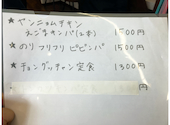 ★ ヤンニョムチキン
えごまキンパ(2本) 1500円
★ のりフリフリビビンバ 1500円
★ チョングッチャン定食 1300円
円